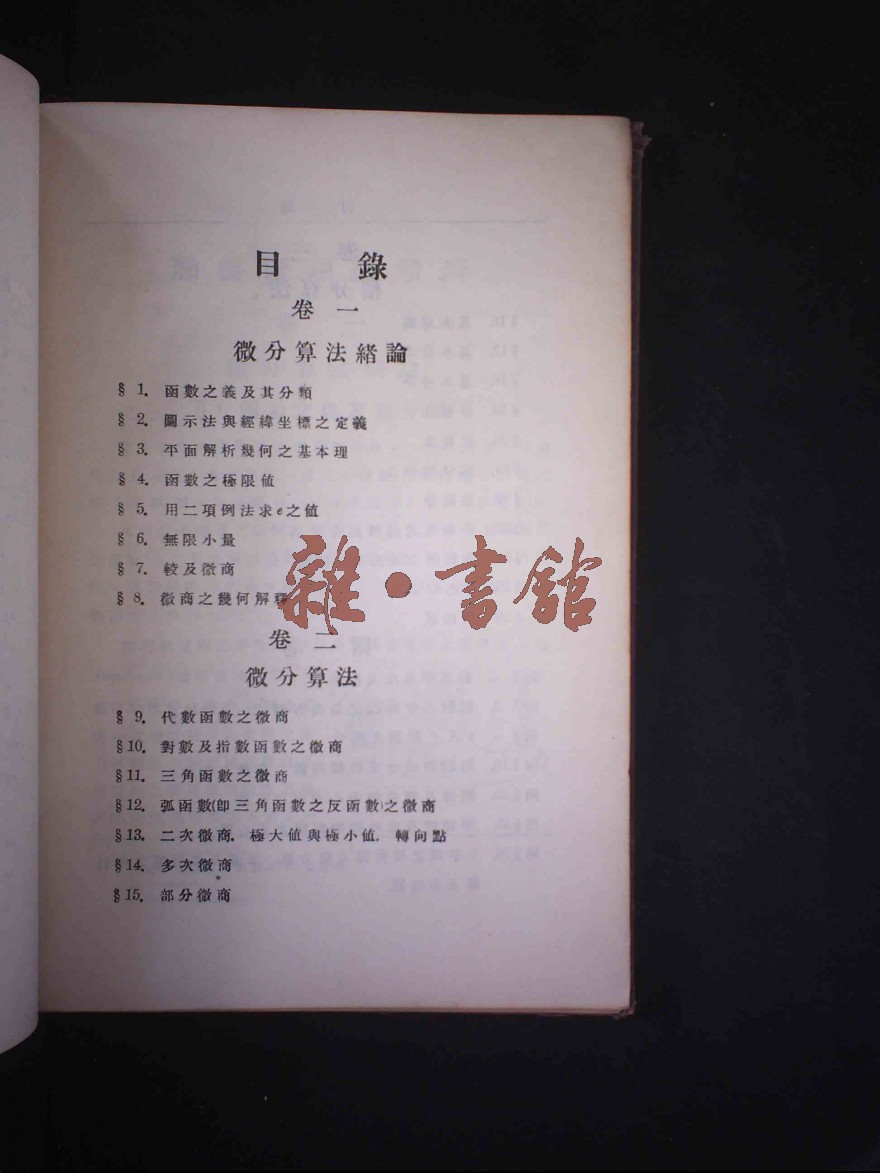 目錄
卷一
微分算法緒論
§ 1. 函數之義及其分類
§ 2. 圖示法與經緯坐標之定義
§ 3. 平面解析幾何之基本理
§ 4. 函數之極限值
§ 5. 用二項例法求e之值
§ 6. 無限小量
§ 7. 較及微商
§ 8. 微商之幾何解釋
雜·書館
卷二
微分算法
§ 9. 代數函數之微商
§10. 對數及指數函數之微商
§11. 三角函數之微商
§12. 弧函數(卽三角函數之反函數)之微商
§13. 二次微商．極大值與極小值．轉向點
§14. 多次微商
§15. 部分微商